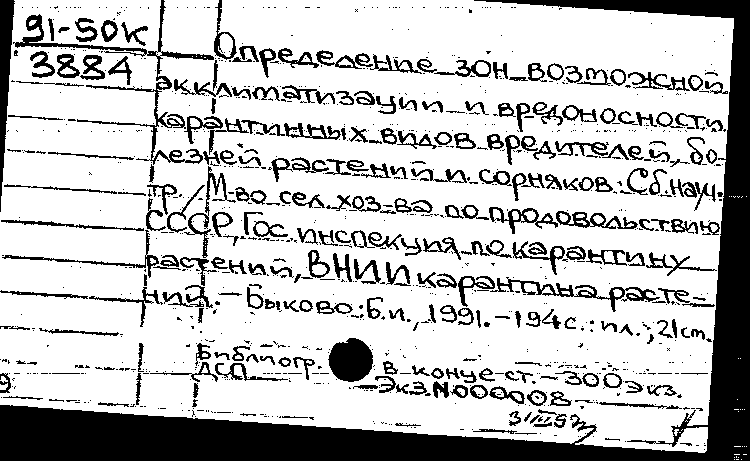 91-50к
3884
Определение зон возможной
акклиматизации и вредоносности
карантинных видов вредителей, бо-
лезней растений и сорняков: Сб. науч.
тр. / М-во сел. хоз-ва по продовольствию
СССР, Гос. инспекция по карантину
растений, ВНИИ карантина расте-
ний. - Быково: Б.и., 1991. - 194 с.: ил.; 21 cm.
Библиогр. в конце ст. - 300 экз.
ДСП Экз. N 000008.
9